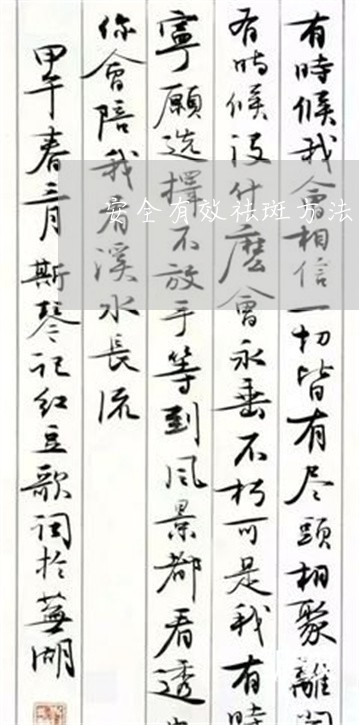 安全有效祛斑方法
有時候我会相信一切皆有尽頭相聚離
有時候没什麽會永垂不朽可是我有時
寧願选擇不放手等到风景都看透
你會陪我看溪水長流
甲午春三月斯琴记红豆歌词於蕪湖